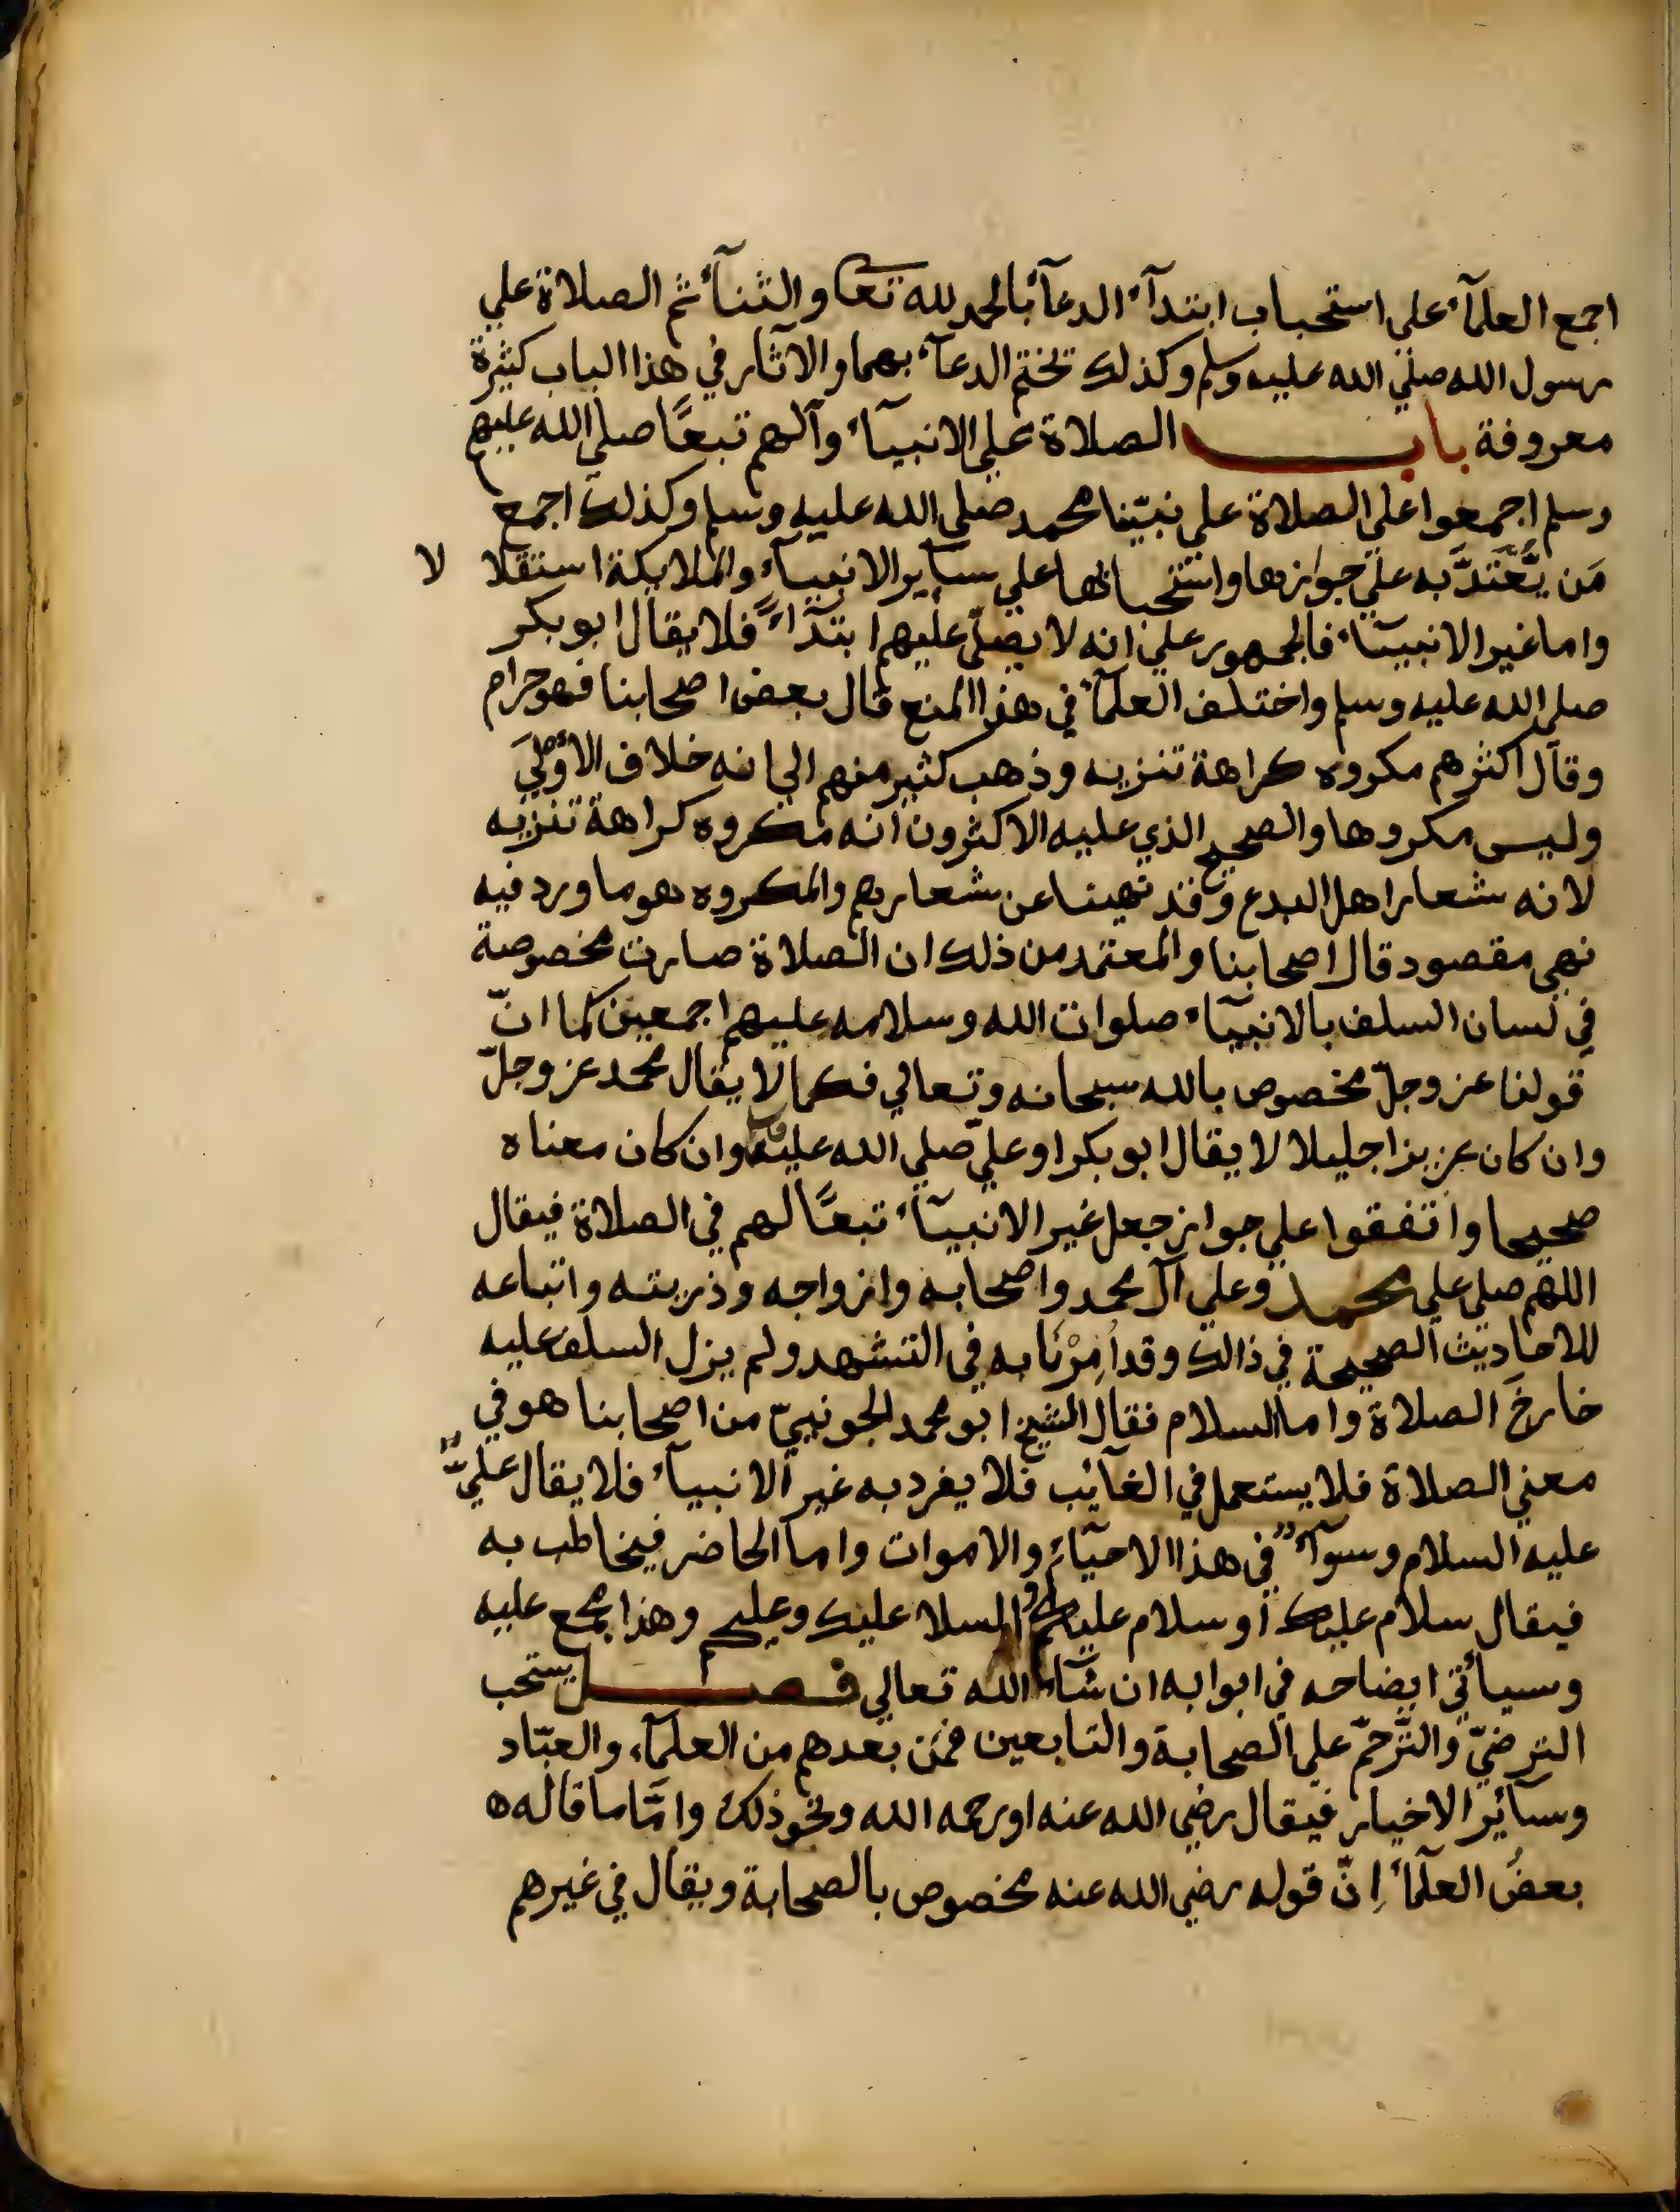 اجمع العلمآء علي استحباب ابتدآء الدعآء بالحمد لله تعا والثنآء ثم الصلاة علي
رسول الله صلي الله عليه وسلم وكذلك تختم الدعآء بهما والاثار في هذا الباب كثيرة
معروفة باب الصلاة علي الانبيآء وآلهم تبعًا صلي الله عليهم
وسلم اجمعوا علي الصلاة علي نبيّنا محمد صلي الله عليه وسلم وكذلك اجمع
مَن يُعْتَدُّ به علي جوازها واستحبابها علي سآير الانبيآء والملايكة استقلا لا
واما غير الانبيآء فالجمهور علي انه لا يصلّي عليهم ابتدآءً فلا يقال ابو بكر
صلي الله عليه وسلم واختلف العلمآء في هذا المنع قال بعض اصحابنا فهو حرام
وقال اكثرهم مكروه كراهة تنزيه وذهب كثير منهم الي انه خلاف الاوْلَي
وليس مكروها والصحيح الذي عليه الاكثرون انه مكروه كراهة تنزيه
لانه شعار اهل البدع وقد نهينا عن شعارهم والمكروه هو ما ورد فيه
نهي مقصود قال اصحابنا والمعتمد من ذلك ان الصلاة صارت مخصوصة
في لسان السلف بالانبيآء صلوات الله وسلامه عليهم اجمعين كما انّ
قولنا عز وجلّ مخصوص بالله سبحانه وتعالي فكما لا يقال محمد عز وجلّ
وان كان عزيزا جليلا لا يقال ابو بكر او علي صلي الله عليه وان كان معناه
صحيحا واتفقوا علي جواز جعل غير الانبيآء تبعًا لهم في الصلاة فيقال
اللهم صلي علي محمد وعلي آل محمد واصحابه وازواجه وذريته واتباعه
للاحاديث الصحيحة في ذالك وقد أُمِرْنَا به في التشهد ولم يزل السلف عليه
خارجَ الصلاة واما السلام فقال الشيخ ابو محمد الجوينيّ من اصحابنا هو في
معني الصلاة فلا يستعمل في الغآئب فلا يفرد به غير الانبيآء فلا يقال عليّ
عليه السلام وسوآء في هذا الاحيآء والاموات واما الحاضر فيخاطب به
فيقال سلام عليك او سلام عليكم او السلا عليك وعليكم وهذا مجمع عليه
وسيأتي ايضاحه في ابوابه ان شآء الله تعالي فصل يستحب
الترضيّ والتَّرحّم علي الصحابة والتابعين فمَن بعدهم من العلمآء والعبّاد
وسآئر الاخيار فيقال رضي الله عنه او رحمه الله ونحو ذلك وامّا ما قاله
بعضُ العلمآء اِنّ قوله رضي الله عنه مخصوص بالصحابة ويقال في غيرهم